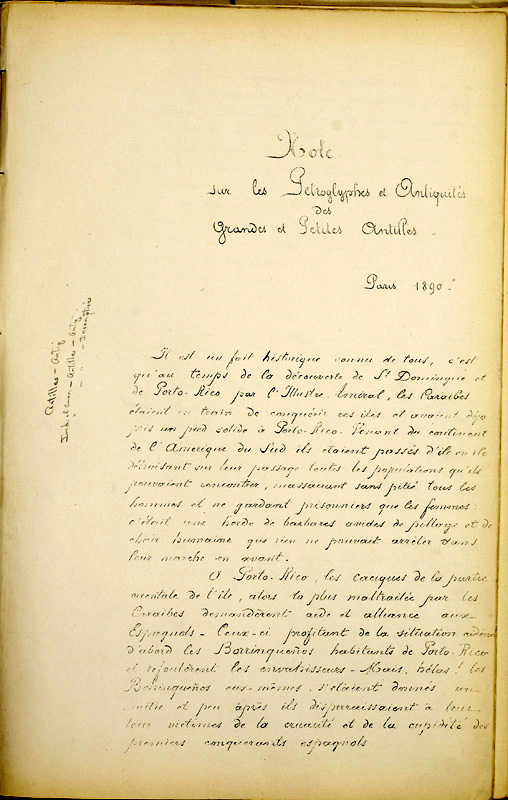 Note
sur les Pétroglyphes et Antiquités
des
Grandes et Petites Antilles.
Paris 1890.
Antilles - Antiq
Il est un fait historique connu de tous, c'est
qu'au temps de la découverte de St Domingue et
de Porto-Rico par l'Illustre Amiral, les Caraïbes
étaient en train de conquérir ces iles et avaient déjà
pris un pied solide à Porto-Rico. Venant du continent
de l'Amérique du Sud ils étaient passés d'île en île
détruisant sur leur passage toutes les populations qu'ils
pouvaient rencontrer, massacrant sans pitié tous les
hommes et ne gardant prisonniers que les femmes:
c'était une horde de barbares avides de pillage et de
chair humaine que rien ne pouvait arrêter dans
leur marche en avant.
A Porto-Rico, les caciques de la partie
orientale de l'île, alors la plus maltraitée par les
Caraïbes demandèrent aide et alliance aux
Espagnols - Ceux-ci profitant de la situation aidèrent
d'abord les Borrinqueños habitants de Porto-Rico
et refoulèrent les envahisseurs - Mais, hélas! les
Borrinqueños eux-mêmes s'étaient donnés un
maître et peu après ils disparaissaient à leur
tour victimes de la cruauté et de la cupidité des
premiers conquérants espagnols